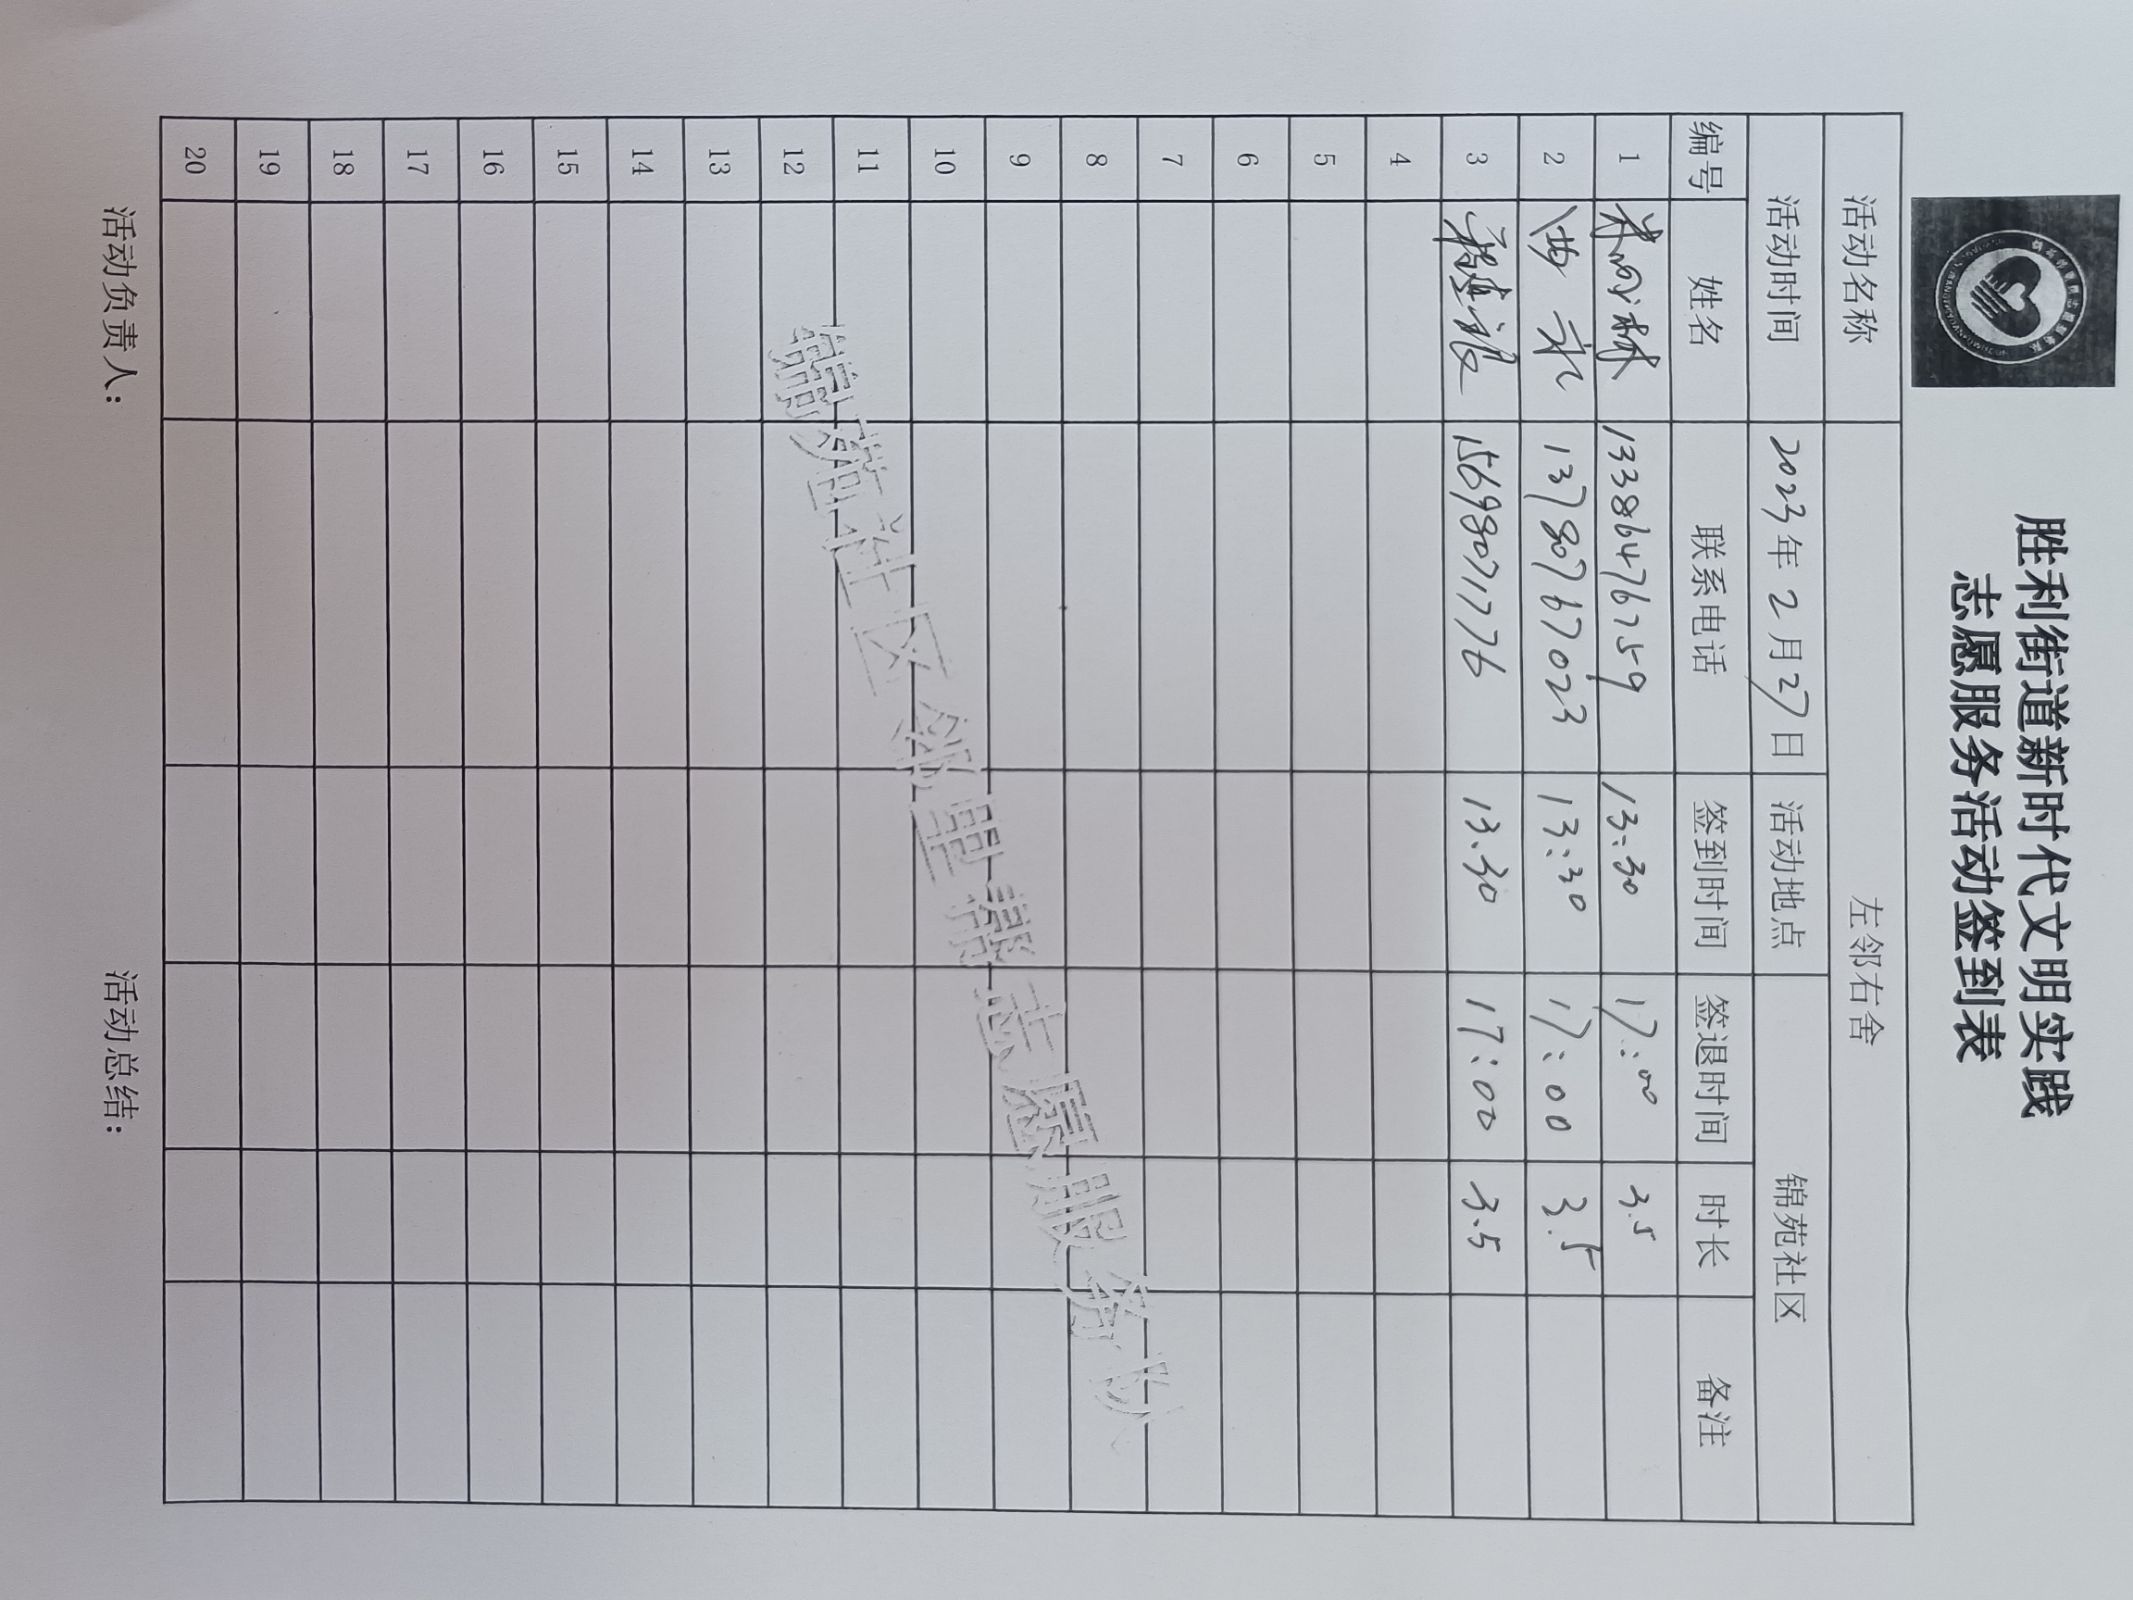 胜利街道新时代文明实践
志愿服务活动签到表
活动名称 左邻右舍
活动时间 2023年2月27日 活动地点 锦苑社区
编号 姓名 联系电话 签到时间 签退时间 时长 备注
1 13386476759 13:30 17:00 3.5
2 曲永 13780767023 13:30 17:00 3.5
3 15698071776 13.30 17:00 3.5
4
5
6
7
8
9
10
11
12
13
14
15
16
17
18
19
20
锦苑社区邻里帮志愿服务队
活动负责人： 活动总结：